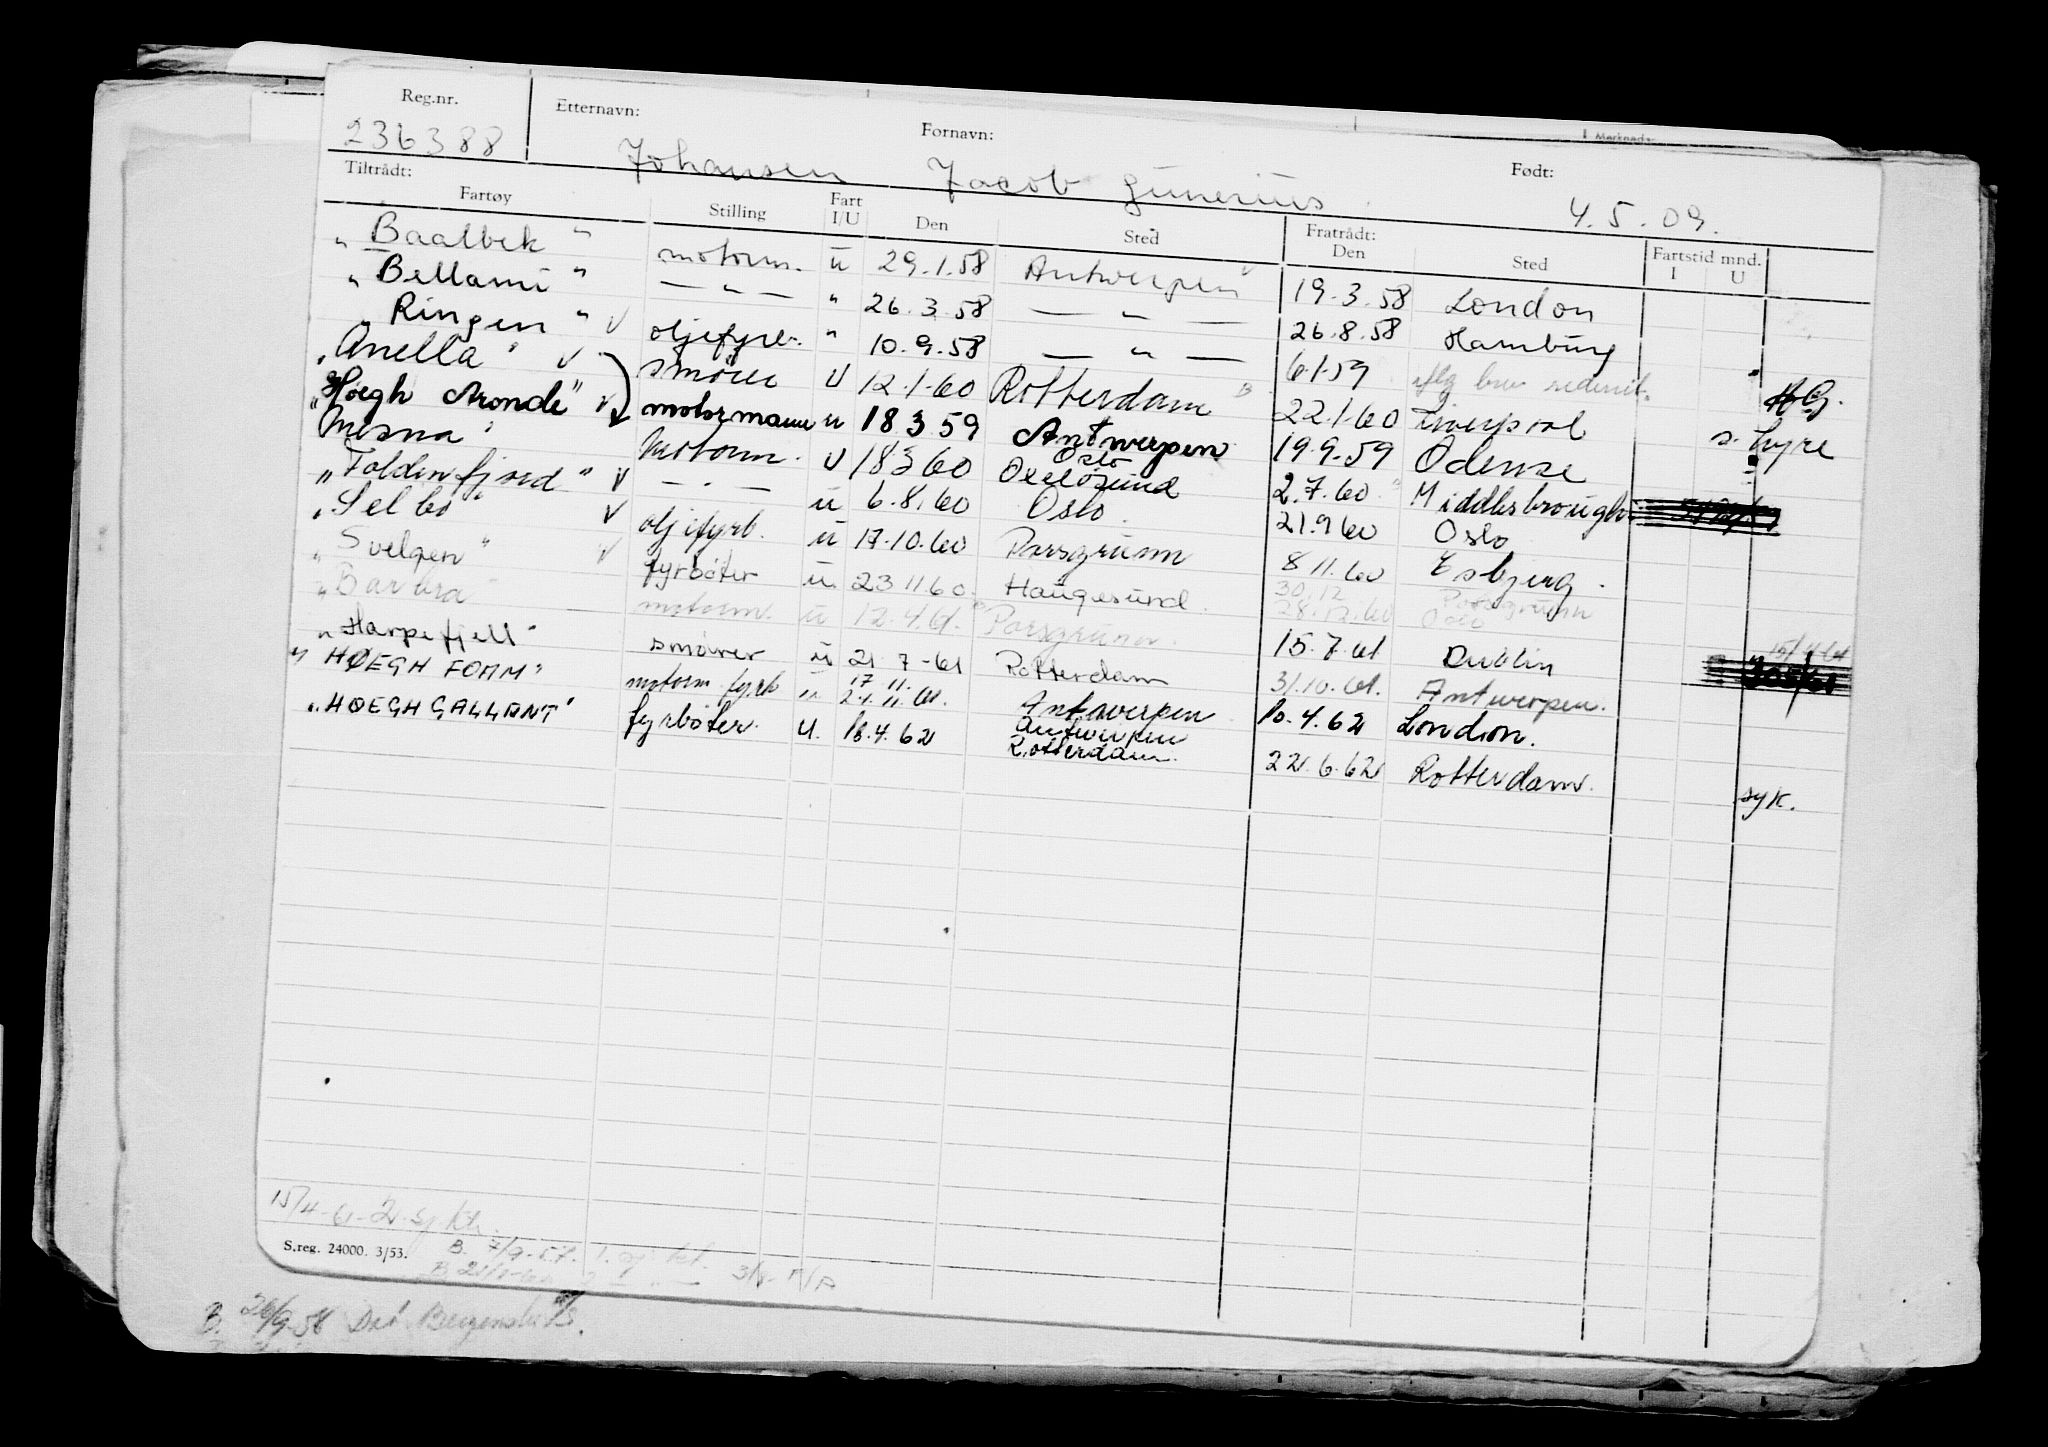 Reg.nr. Etternavn: Fornavn: Født:
236388 Johansen Jacob Gunerius 4.5.09.
Tiltrådt: Fratrådt:
Fartøy Stilling Fart I/U Den Sted Den Sted Fartstid mnd. I U
"Baalbek" motorm. u 29.1.58 Antwerpen 19.3.58 London
"Bellami" — " — " 26.3.58 — " — 26.8.58 Hamburg
"Ringen" v oljefyrb. " 10.9.58 — " — 6/1.59 iflg brev rederiet.
"Anella" v smører U 12.1.60 Rotterdam B 22.1.60 Liverpool
"Høegh Aronde" v motormann u 18.3.59 Antwerpen 19.9.59 Odense s. Lyre
Mesna" Motorm. U 18.3.60 Oslo Oxelösund 2.7.60 Middlesbrough
"Foldenfjord" v — " — u 6.8.60 Oslo 21.9.60 Oslo
"Selbo" v oljefyrb. u 17.10.60 Porsgrunn 8.11.60 Esbjerg.
"Svelgen" v fyrbøter u. 23.11.60. Haugesund. 30.12 28.12.60 Porsgrunn Oslo
"Barbra" motorm. u 12.4.61. Porsgrunn. 15.7.61 Dublin
"Harpefjell" smører u 21.7-61 Rotterdam 31.10.61. Antwerpen.
"HØEGH FOAM" motorm. fyrb u 17.11. 24.11.61. Antwerpen Antwerpen 10.4.62 London.
"HØEGH GALLANT" fyrbøter. U. 18.4.62 Rotterdam. 22.6.62 Rotterdam. syk.
15/4-61-2. sj.
S.reg. 24000. 3/53. B. 7/9-57. 1. sj.
B. 26/9-56